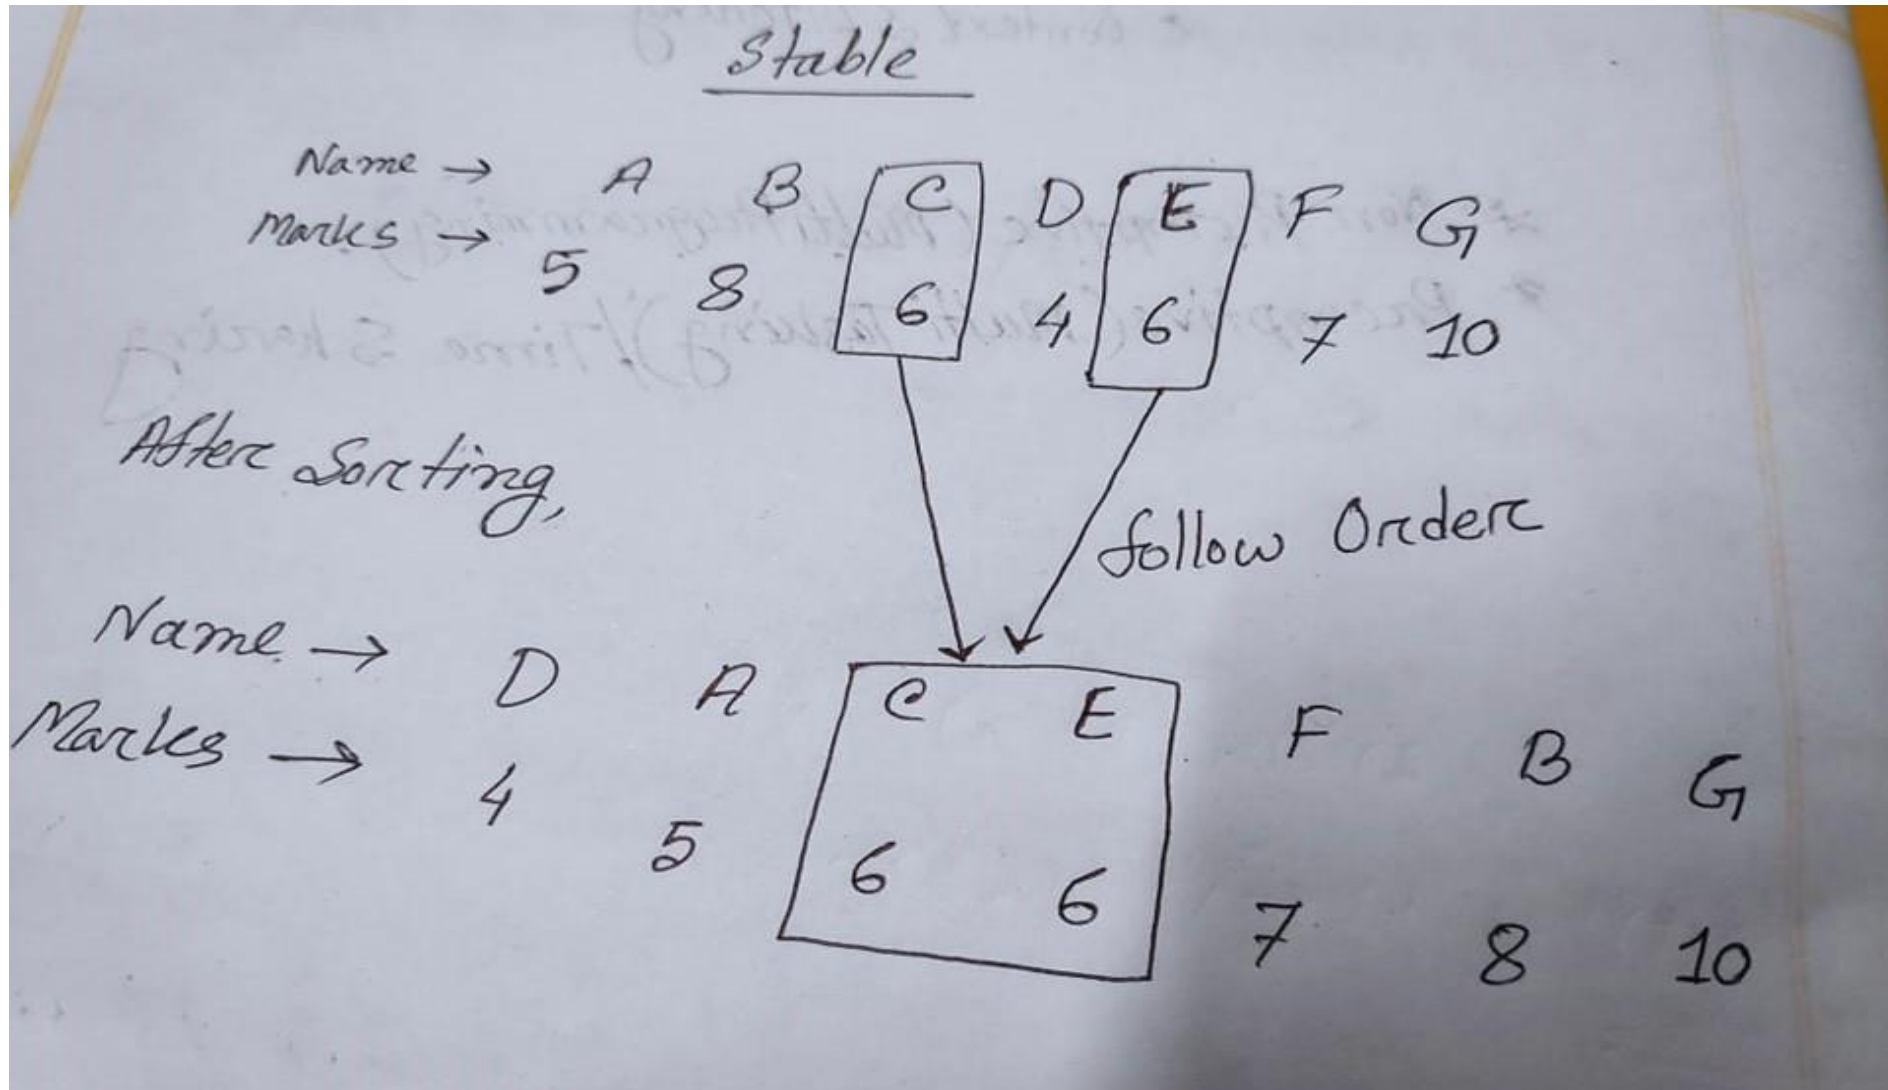 Stable
Name → A B C D E F G
Marks → 5 8 6 4 6 7 10
After Sorting,
follow Order
Name → D A C E F B G
Marks → 4 5 6 6 7 8 10